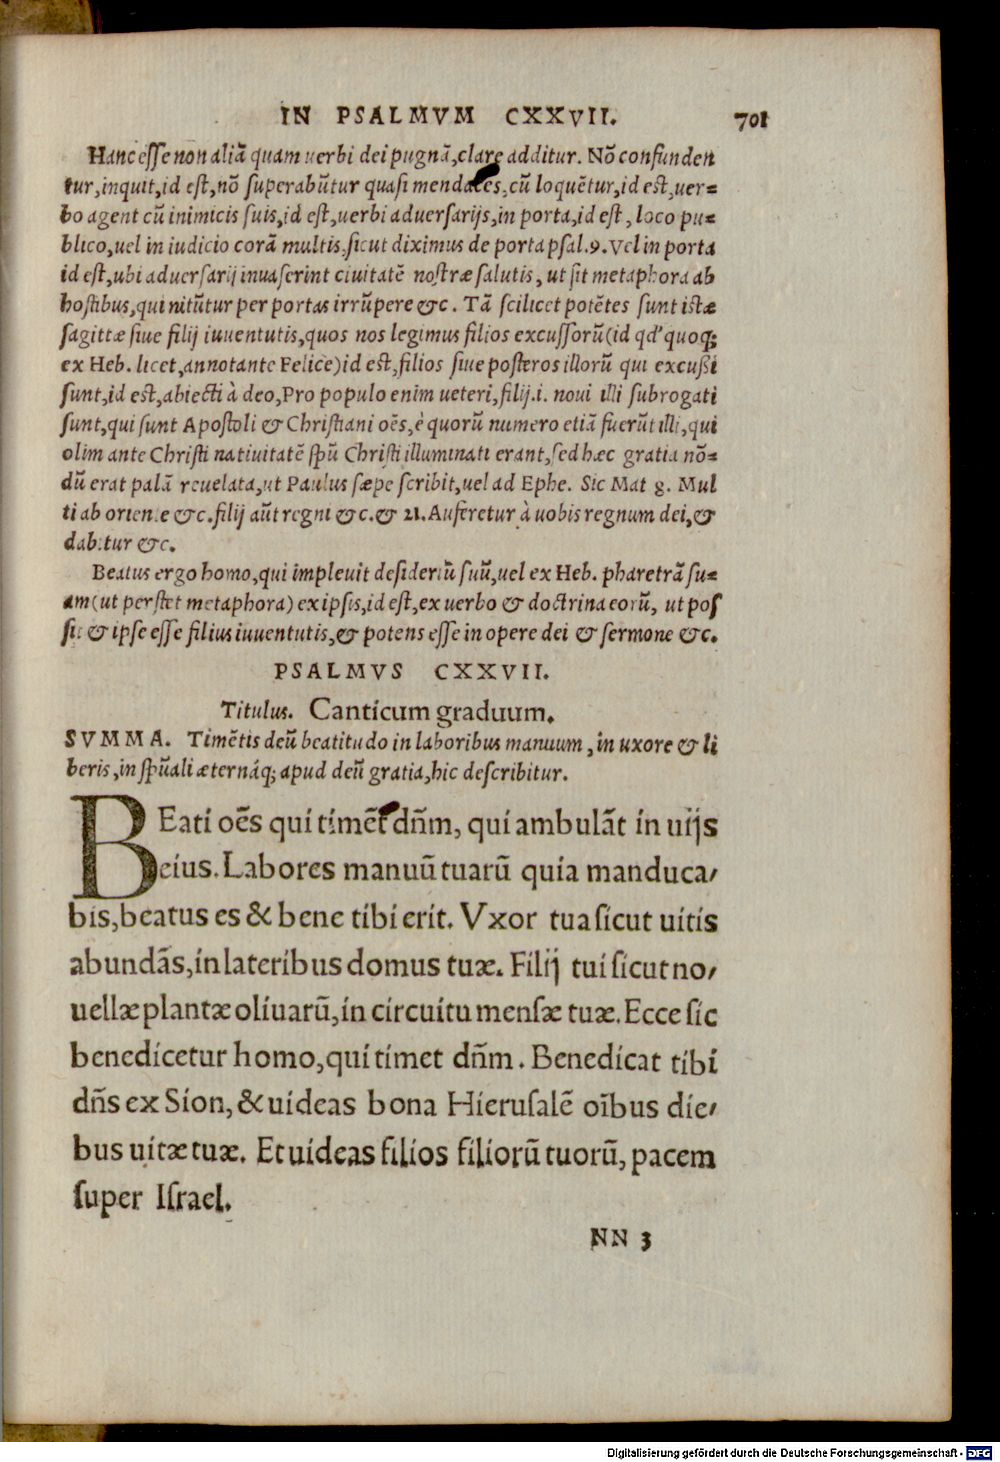 IN PSALMVM CXXVII. 701
Hanc esse non aliā quam uerbi dei pugnā, clare additur. Nō confunden
tur, inquit, id est, nō superabūtur quasi mendaces, cū loquētur, id est, uer=
bo agent cū inimicis suis, id est, uerbi aduersarijs, in porta, id est, loco pu=
blico, uel in iudicio corā multis, sicut diximus de porta psal. 9. Vel in porta
id est, ubi aduersarij inuaserint ciuitatē nostræ salutis, ut sit metaphora ab
hostibus, qui nitūtur per portas irrūpere &c. Tā scilicet potētes sunt istæ
sagittæ siue filij iuuentutis, quos nos legimus filios excussorū (id qd' quoq;
ex Heb. licet, annotante Felice) id est, filios siue posteros illorū qui excußi
sunt, id est, abiecti à deo, Pro populo enim ueteri, filij .i. noui illi subrogati
sunt, qui sunt Apostoli & Christiani oēs, è quorū numero etiā fuerūt illi, qui
olim ante Christi natiuitatē spū Christi illuminati erant, sed hæc gratia nō=
dū erat palā reuelata, ut Paulus sæpe scribit, uel ad Ephe. Sic Mat 8. Mul
ti ab oriente &c. filij aūt regni &c. & 21. Auferetur à uobis regnum dei, &
dabitur &c.
Beatus ergo homo, qui impleuit desideriū suū, uel ex Heb. pharetrā su=
am (ut perstet metaphora) ex ipsis, id est, ex uerbo & doctrina eorū, ut pos
sit & ipse esse filius iuuentutis, & potens esse in opere dei & sermone &c.
PSALMVS CXXVII.
Titulus. Canticum graduum.
SVMMA. Timētis deū beatitudo in laboribus manuum, in uxore & li
beris, in spūali æternáq; apud deū gratia, hic describitur.
BEati oēs qui timēt dñm, qui ambulāt in uijs
eius. Labores manuū tuarū quia manduca/
bis, beatus es & bene tibi erit. Vxor tua sicut uitis
abundās, in lateribus domus tuæ. Filij tui sicut no/
uellæ plantæ oliuarū, in circuitu mensæ tuæ. Ecce sic
benedicetur homo, qui timet dñm. Benedicat tibi
dñs ex Sion, & uideas bona Hierusalē oībus die/
bus uitæ tuæ. Et uideas filios filiorū tuorū, pacem
super Israel.
NN 3
Digitalisierung gefördert durch die Deutsche Forschungsgemeinschaft - DFG